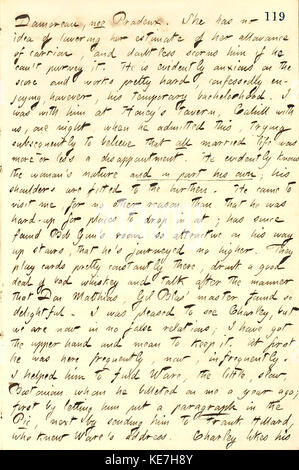 119
Damoreau, née Pradeux. She has no
idea of lowering her estimate of her allowance
of carrion and doubtless scorns him if he
can't purvey it. He is evidently anxious on the
score and works pretty hard confessedly en-
joying, however, his temporary bachelorhood. I
was with him at Honey's Tavern, Cahill with
us, one night when he admitted this, trying
subsequently to believe that all married life was
more or less a disappointment. He evidently knows
the woman's nature and in part his own; his
shoulders are fitted to the burthen. He came to
visit me for no other reason than that he was
hard-up for places to drop in at; has since
found Bob Gun's room so attractive on his way
up stairs, that he's journeyed no higher. They
play cards pretty constantly there, drink a good
deal of bad whiskey and talk after the manner
that Dan Mathews, Gil Blas' master found so
delightful. I was pleased to see Charley, but
we are now in no false relations; I have got
the upper hand and mean to keep it. At first
he was here frequently, now, infrequently.
I helped him to find Ware, the little, slow,
Bostonian whom he billeted on me a year ago;
first by letting him put a paragraph in the
Pic, next by sending him to Frank Millard,
who knew Ware's address. Charley likes his
alamy
Image ID: KE7H8Y
www.alamy.com